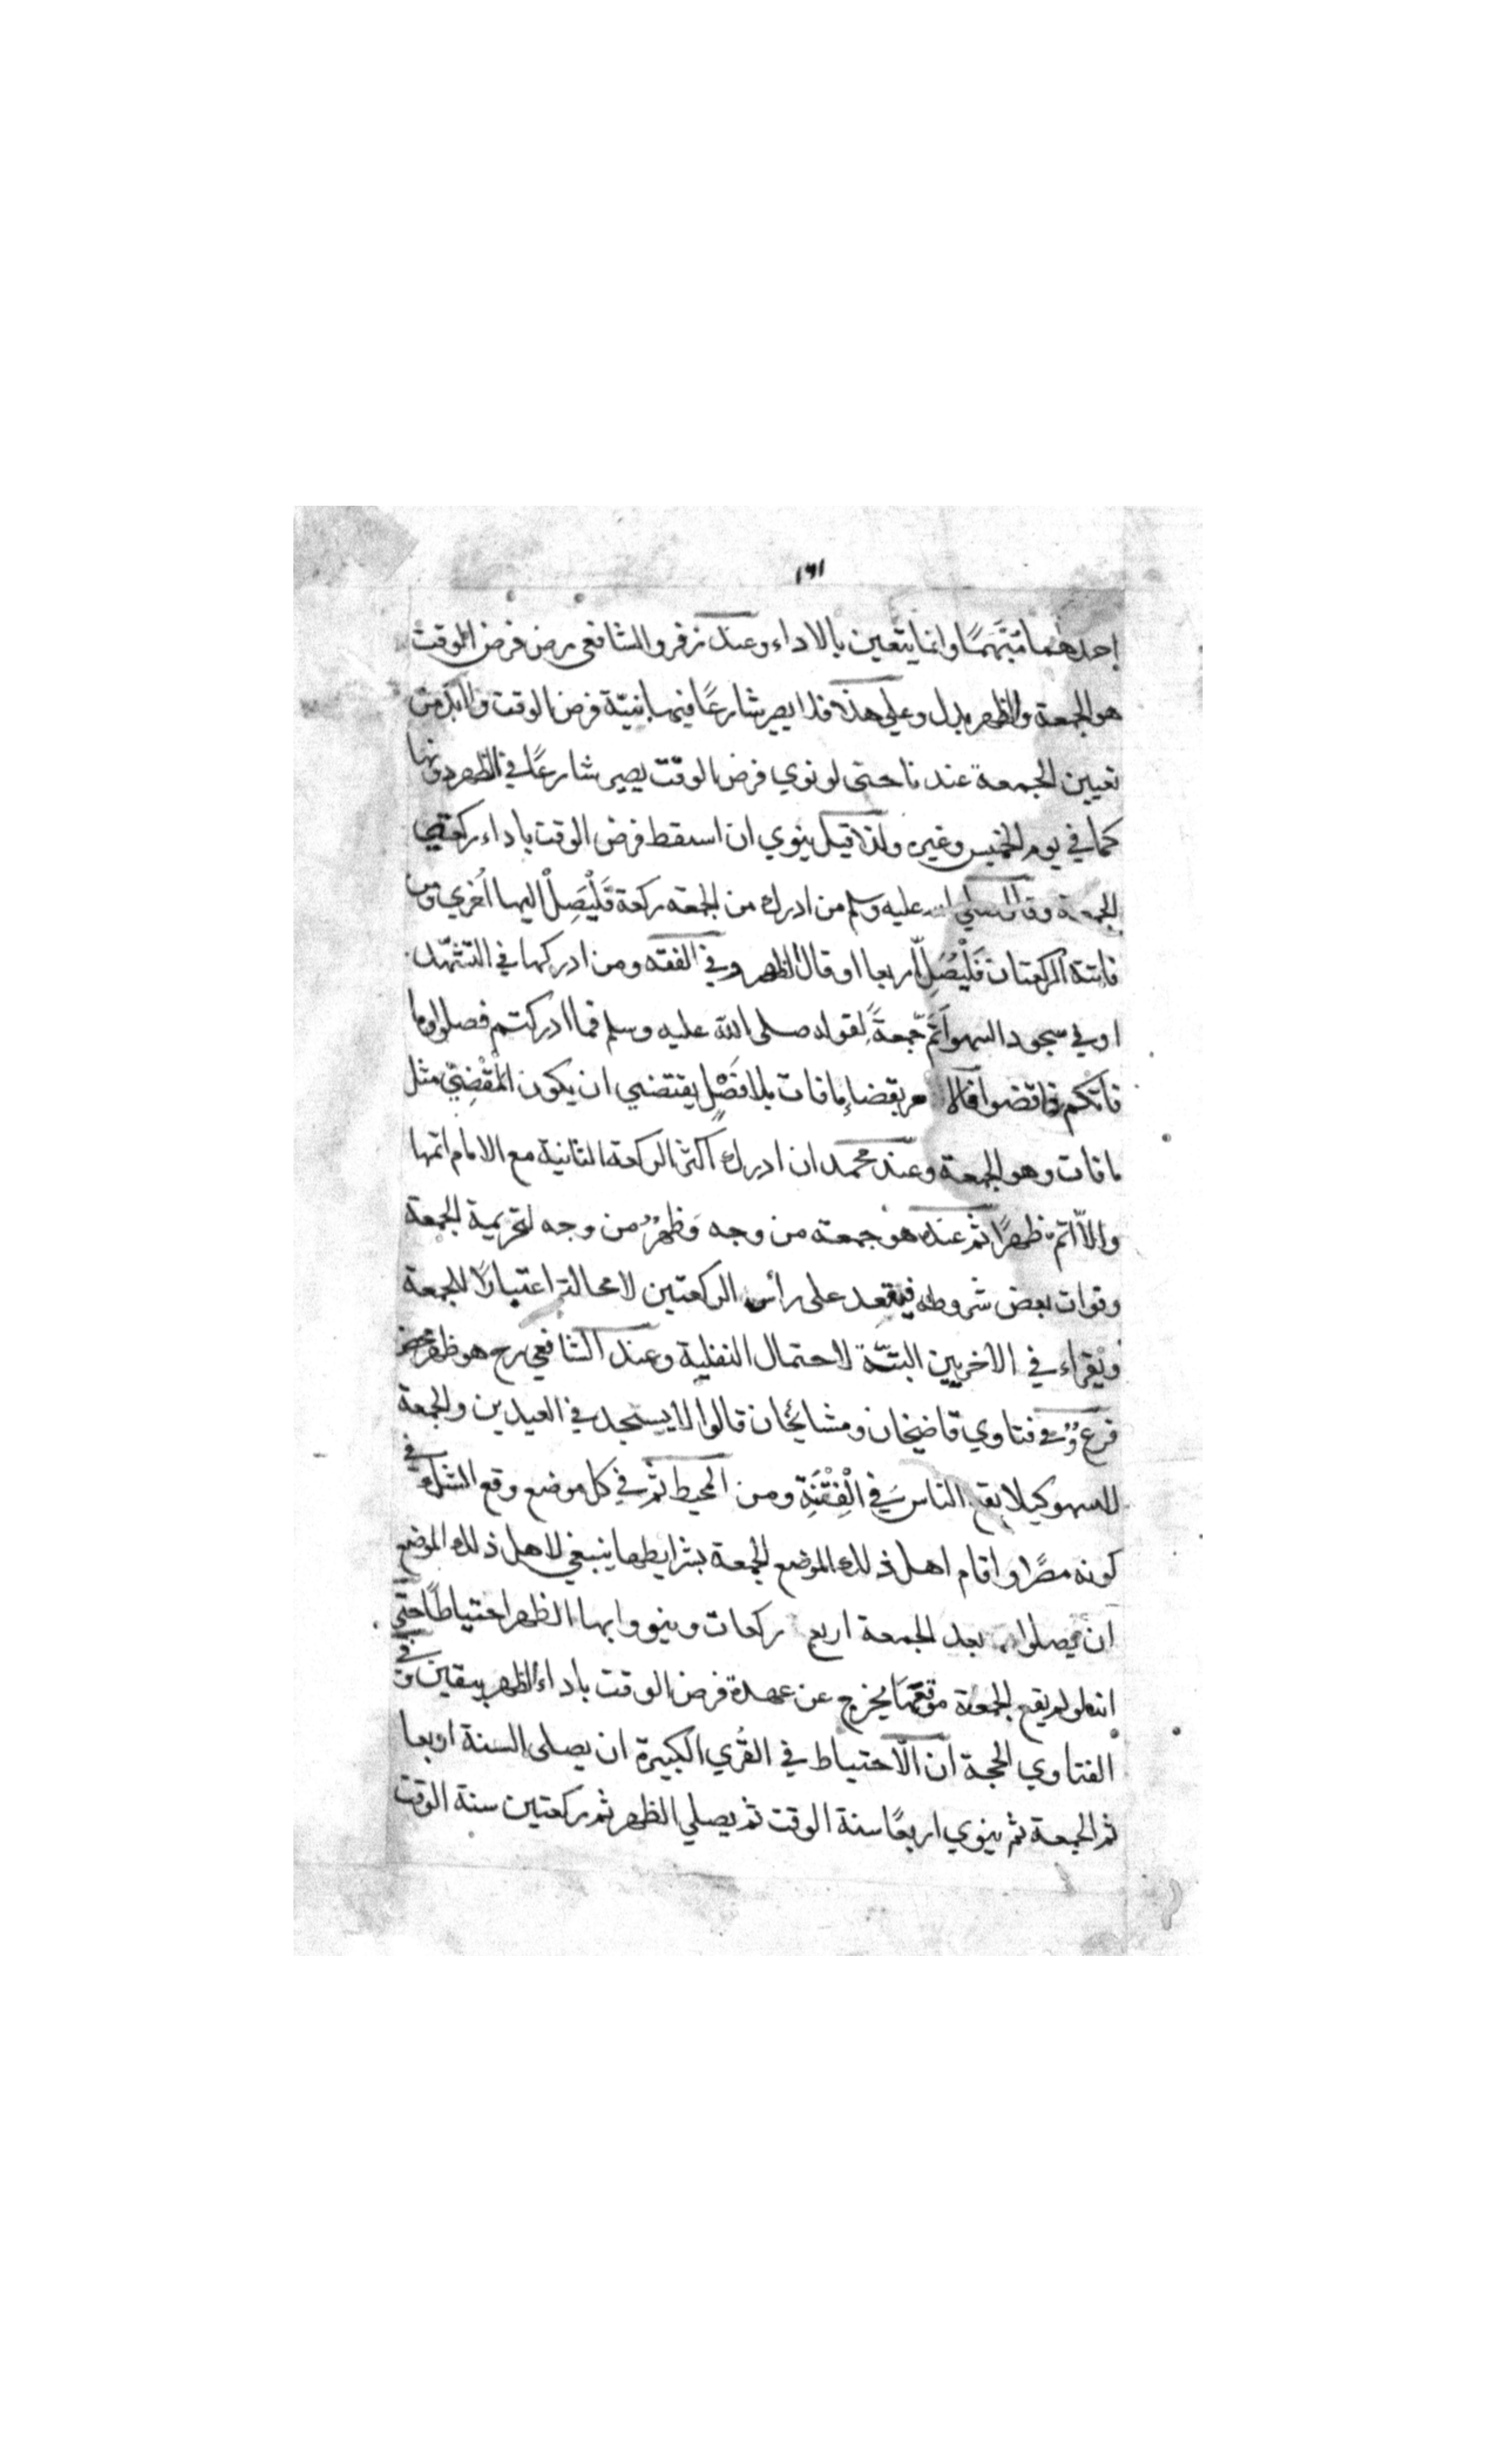 ١٦١
احدهما مُبْهَمًا وانما يتعين بالاداء وعند زفر والشافعي رض فرض الوقت
هو الجمعة والظهر بدل وعلي هذا فلا يصير شارعًا فيها بنيّة فرض الوقت ولابد من
تعيين الجمعة عند ناحتى لو نوي فرض الوقت يصير شارعًا في الظهر دونها
كما في يوم الخميس وغيره ولذا قيل ينوي ان اسقط فرض الوقت باداء ركعتي
الجمعة وقال صلي الله عليه وسلم من ادرك من الجمعة ركعة فَلْيَصِلْ اليها اُخري ومن
فاتته الركعتان فَلْيُصَلِّ اربعا او قال الظهر وفي الفقه ومن ادركها في التشهّد
او في سجود السهو اَتَمَّ جُمعةً لقوله صلى الله عليه وسلم فما ادركتم فصلوا وما
فاتكم فاقضوا فالامر بقضاء ما فات بلا فَصْلٍ يقتضي ان يكون المَقْضِيّ مثل
ما فات وهو الجمعة وعند محمد ان ادرك اكثر الركعة الثانية مع الامام اتمها
والاّ اتم ظهرًا ثم عنده هو جمعة من وجه وَظهرٌ من وجه لتحريمة الجمعة
وفوات بعض شروطه فيقعد على رأس الركعتين لا محالة اعتبارًا للجمعة
ويقراء في الاخريين البتّة لاحتمال النفلية وعند الشافعي رح هو ظهر محض
فرع وفي فتاوي قاضيخان ومشايخنا قالوا لا يسجد في العيدين والجمعة
للسهو كيلا يقع الناس في الْفِتْنَةِ ومن المحيط ثم في كل موضع وقع الشك في
كونه مصرًا واقام اهل ذلك الموضع الجمعة بشرايطها ينبغي لاهل ذلك الموضع
ان يصلوا بعد الجمعة اربع ركعات وينووا بها الظهر احتياطًا حتّي
انه لو لم يقع الجمعة موقعها يخرج عن عهدة فرض الوقت باداء الظهر بيقين وفي
الفتاوي الحجة ان الاحتياط في القُري الكبيرة ان يصلى السنة اربعا
ثم الجمعة ثم ينوي اربعًا سنة الوقت ثم يصلي الظهر ثم ركعتين سنة الوقت